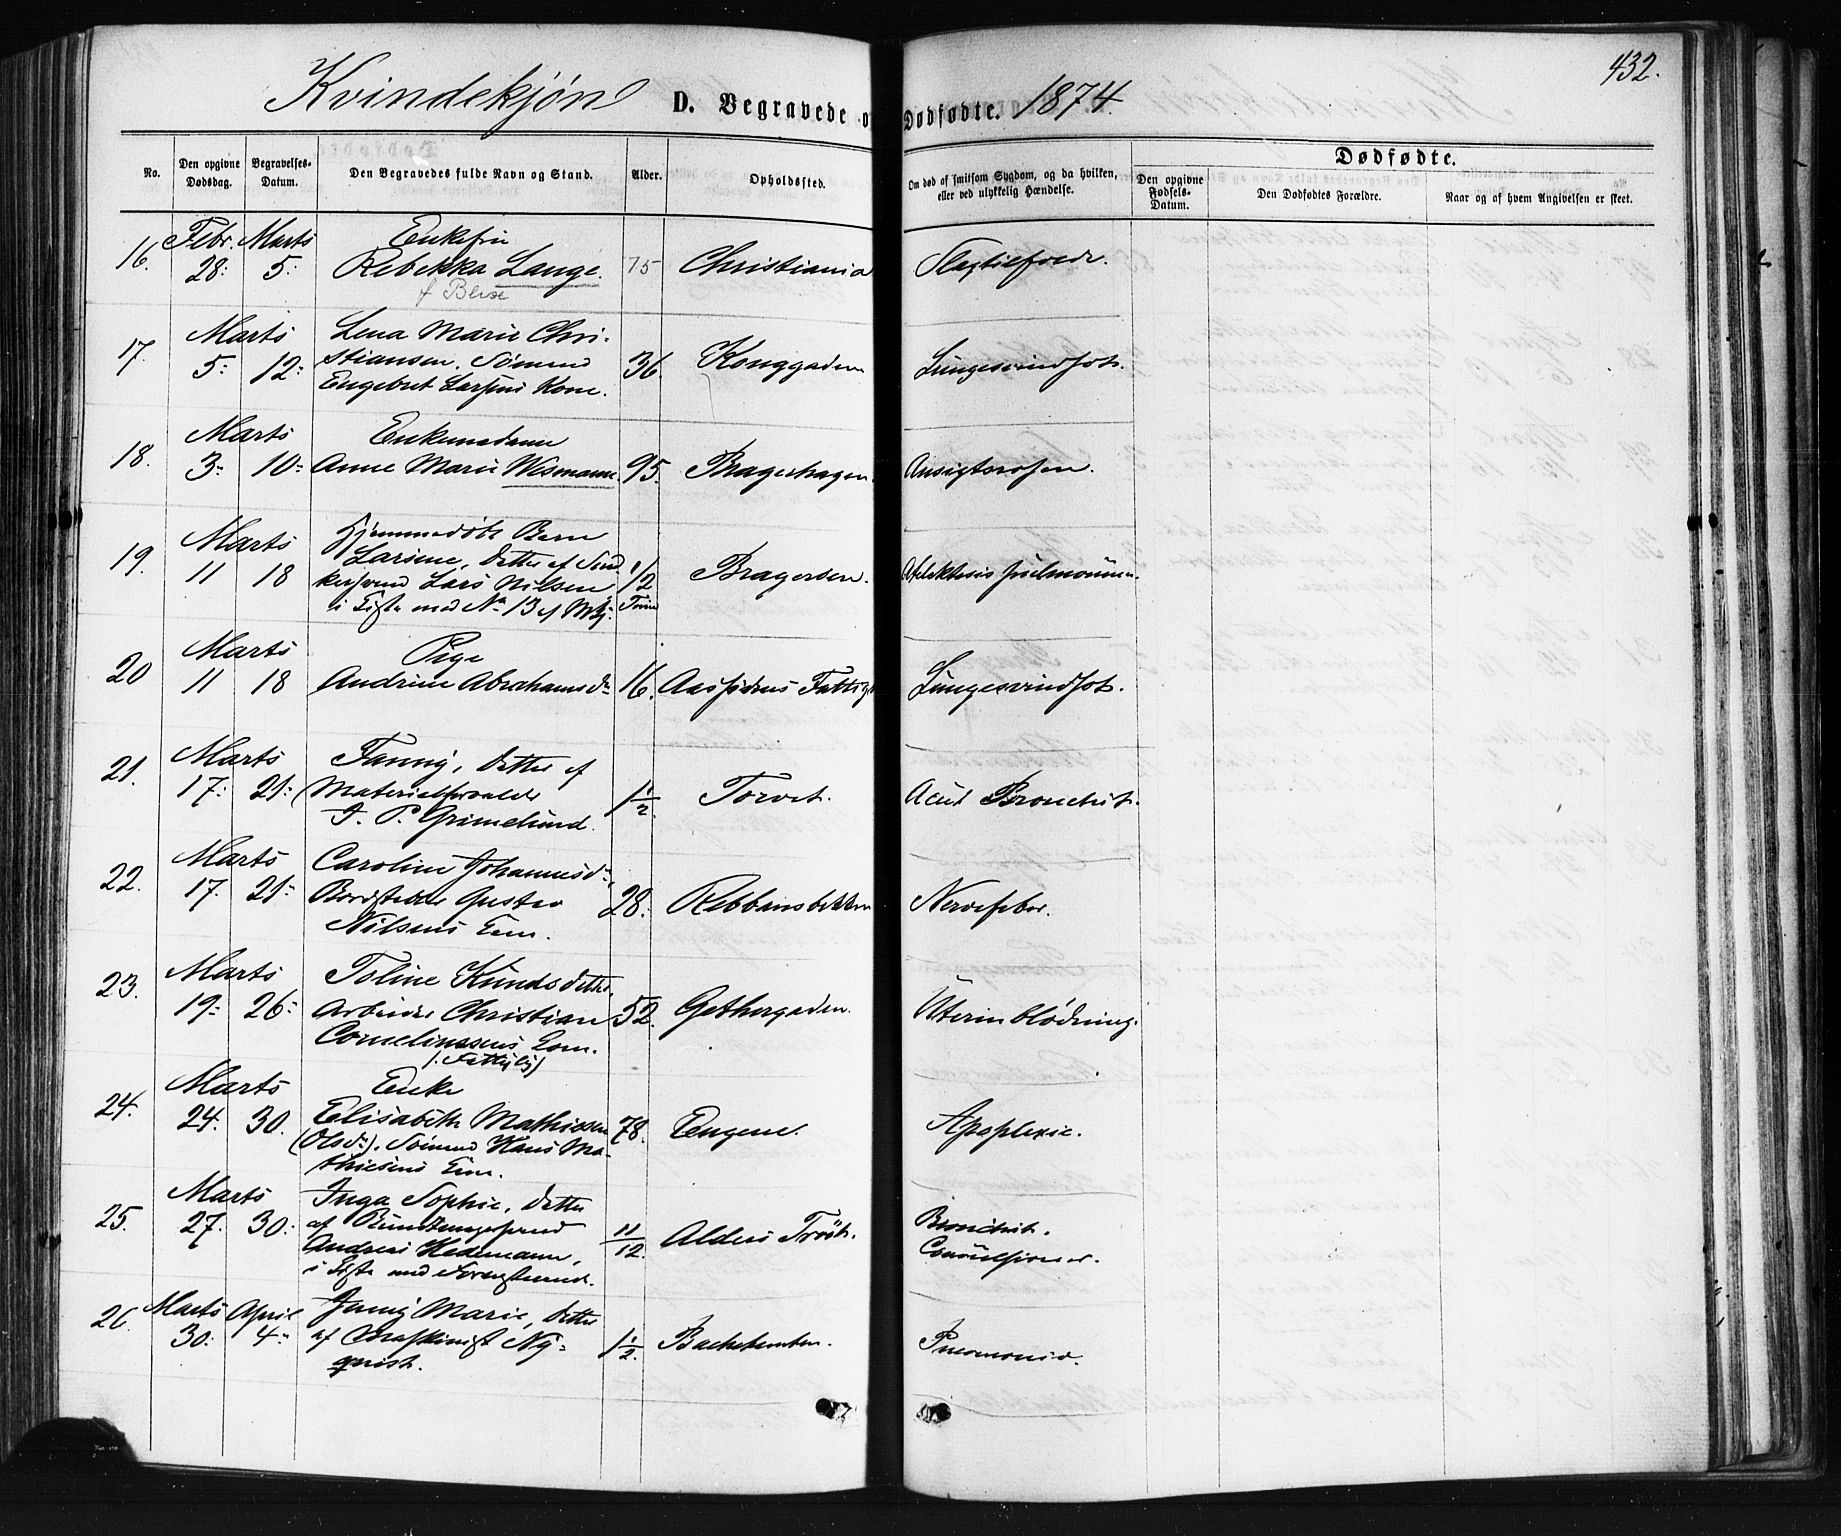 432.
Kvindekjön D. Begravede o Dødfødte. 1874.
No. Den opgivne Dødsdag. Begravelses-Datum. Den Begravedes fulde Navn og Stand. Alder. Opholdssted. Om død af smitsom Sygdom, og da hvilken, eller ved ulykkelig Hændelse. Dødfødte.
Den opgivne Fødsels-Datum. Den Dødfødtes Forældre. Naar og af hvem Angivelsen er skeet.
Febr. Marts Enkefru
16. 28: 5: Rebekka Lange. 75 Christiania
Marts Lena Marie Chri-
17. 5: 12: stiansen. Sömand 36. Konggaden Lungesvindsot.
Engebret Larsens Kone.
Marts Enkemadame
18. 3: 10: Anne Marie Wismann. 95. Bragerhagen Ansigtsrosen.
Marts Hjemmedöbt Barn
19. 11 18 Larsine, Datter af 1/2 Bragersen.
Lars Nilsen
i Kiste med No 13 af Mkj. Time
Marts Pige
20 11 18 Andrine Abrahamsdr 16. Aassidens Lungesvindsot.
Marts Fanny, Datter af
21. 17: 21: Materialforvalter 1 1/2 Torvet. Acut Bronchit.
J. P. Grimelund.
Marts Caroline Johannesdr,
22. 17. 21: Gustav 28: Rebbansbakken Nervefeber.
Nilsens
Marts Toline Knudsdatter,
23. 19: 26: Arbeider Christian 52. Gethergaden. Uterinblödning.
Corneliussens
Marts Enke
24. 24. 30. Elisabeth Mathiesen 78. Engene. Apoplexie.
(Olsdr), Sömand Hans Ma-
thiesens
Marts Inga Sophie, Datter Bronchit.
25. 27. 30: af Buntmagersvend 11/12. Alders Tröst. Convulsioner.
Andreas Hedemann,
i Kiste med
Marts April Jenny Marie, Datter
26. 30: 4: af Maskinist Ny- 1 1/2. Pneumonie.
quist.